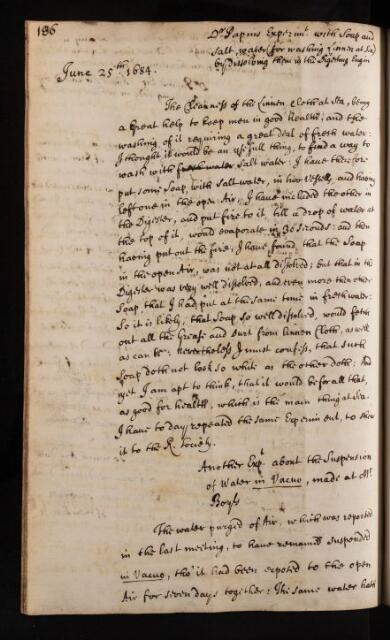 186
Dr Papins Experimt. with Soap and
Salt, water (for washing Linnen at Sea)
by dissolving them in the Digestus Engin
June 25th 1684.
The Cleanness of the Linnen Cloth at Sea, being
a great help to keep men in good health; and the
washing of it requiring a great deal of fresh water:
I thought it would be an usefull thing, to find a way to
wash with fresh water salt water: I have therefor
put some Soap, with salt water, in two Vessells, and having
left one in the open Air, I have included the other in
the Digester, and put fire to it, till a drop of water at
the top of it, would evaporate in 30 seconds: and then
having put out the fire, I have found, that the Soap
in the open Air, was not at all dissolved; but that in the
Digester was very well dissolved, and even more then other
Soap, that I had put at the same time in fresh water:
So it is likely, that Soap so well dissolved, would fetch
out all the Grease and durt from linnen Cloth, as well
as can be; Nevertheless I must confess, that such
Soap doth not look so white as the other doth: And
yet I am apt to think, that it would be for all that,
as good for health, which is the main thing at sea.
I have to day repeated the same Experiment, to shew
it to the R. Society.
Another Expt about the Suspension
of Water in Vacuo, made at Mr.
Boyls
The water purged of Air, which was reported
in the last meeting, to have remained suspended
in Vacuo, tho' it had been exposed to the open
Air for seven days together: The same water hath